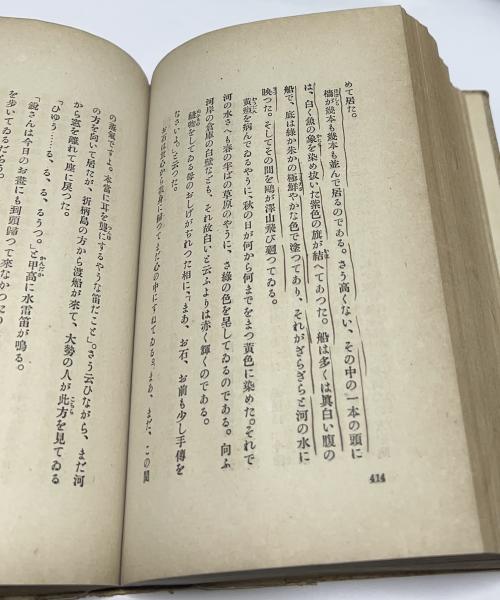 めて居た。
檣が幾本も幾本も並んで居るのである。さう高くない、その中の一本の頭に
は、白く魚の象を染め抜いた紫色の旗が結へてあつた。船は多くは眞白い腹の
船で、底は綠か朱かの極鮮やかな色で塗つてあり、それがぎらぎらと河の水に
映つた。そしてその間を鷗が澤山飛び廻つてゐる。
黃疸を病んでゐるやうに、秋の日が何から何までをまつ黃色に染めた。それで
河の水さへも春の半ばの草原のやうに、さ綠の色を呈してゐるのである。向ふ
河岸の倉庫の白壁なども、それ故白いと云ふよりは赤く輝くのである。
縫物をしてゐる母のおしげがぢれつた相に、「まあ、お石、お前も少し手傳を
なさいよ。」と云つた。
414
の湯氣ですよ。本當に耳を聾にするやうな笛だこと」。さう云ひながら、まだ河
の方を向いて居たが、折柄島の方から渡船が來て、大勢の人が此方を見てゐる
から窓を離れて座に戾つた。
「ひゆう……る、る、る、るうつ。」と甲高に水雷笛が鳴る。
「銳さんは今日のお盡にも到頭歸つて來なかつた
を步いてゐるだらう。